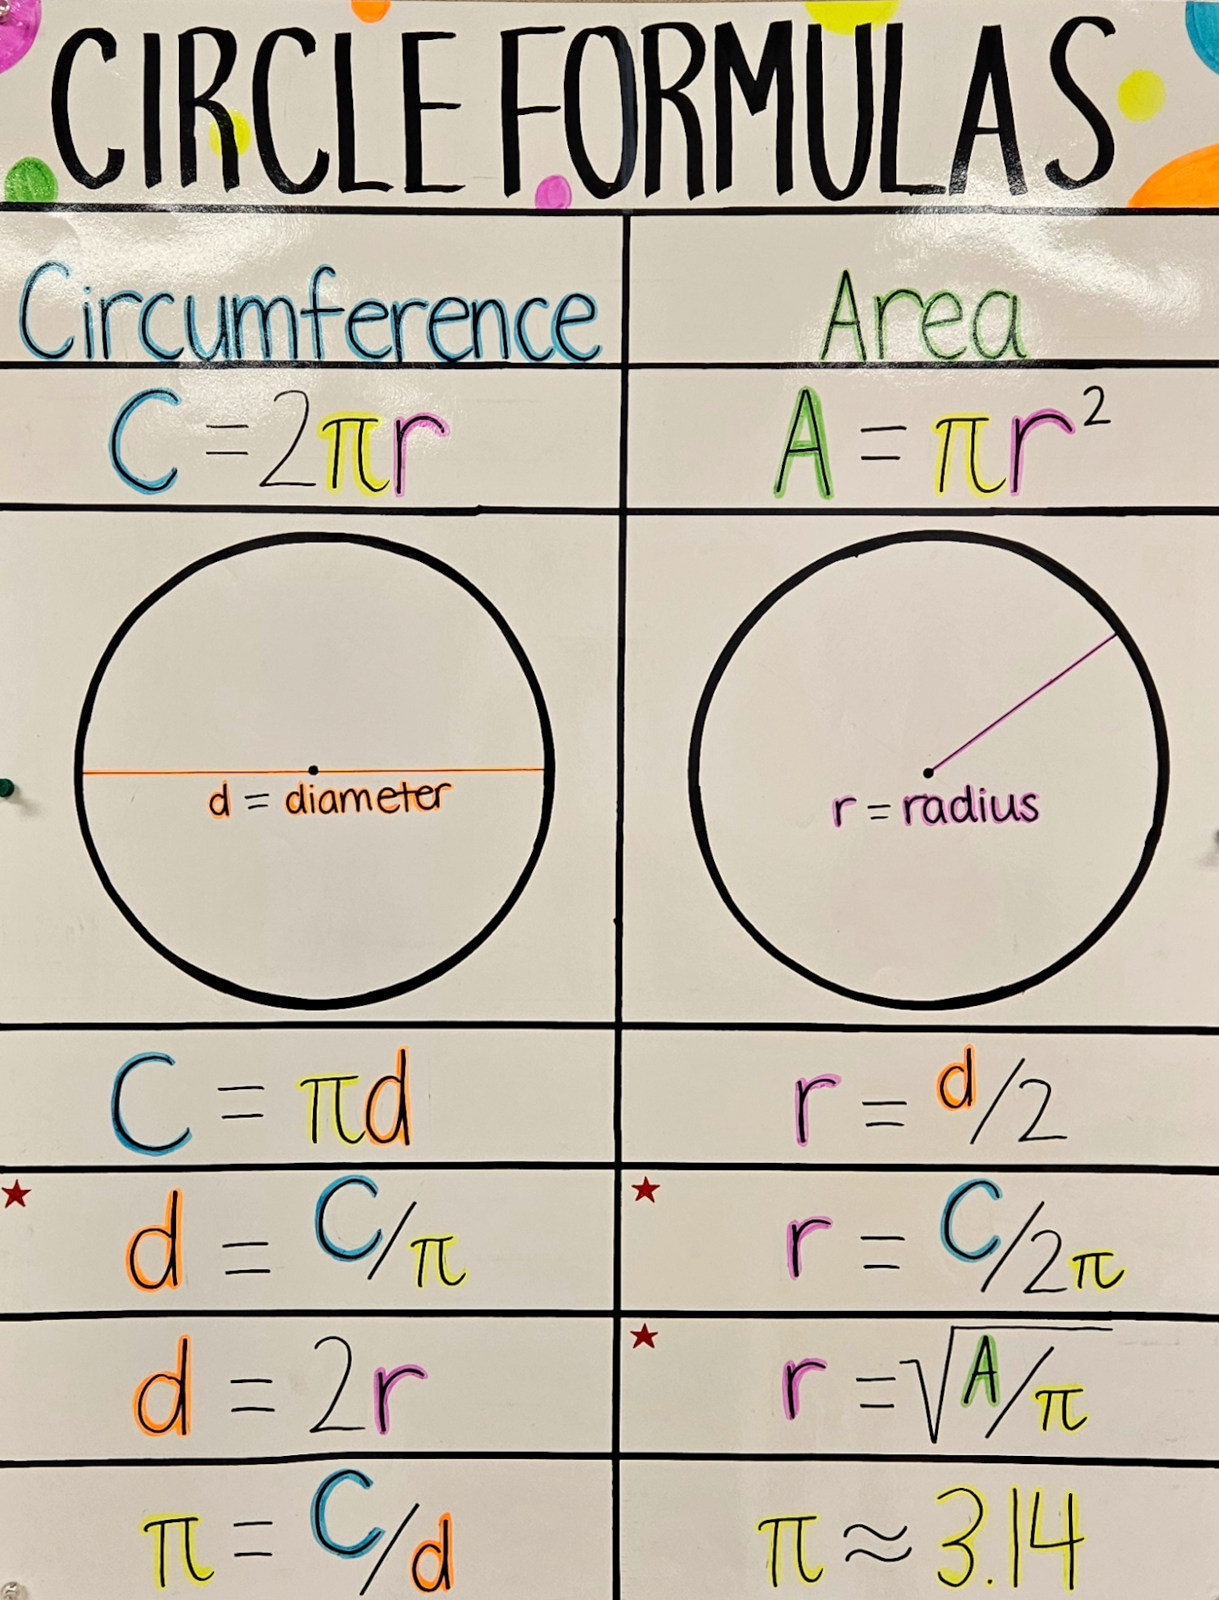 CIRCLE FORMULAS
Circumference
Area
C = 2πr
A = πr²
d = diameter
r = radius
C = πd
r = d/2
d = C/π
r = C/2π
d = 2r
r = √A/π
π = C/d
π ≈ 3.14